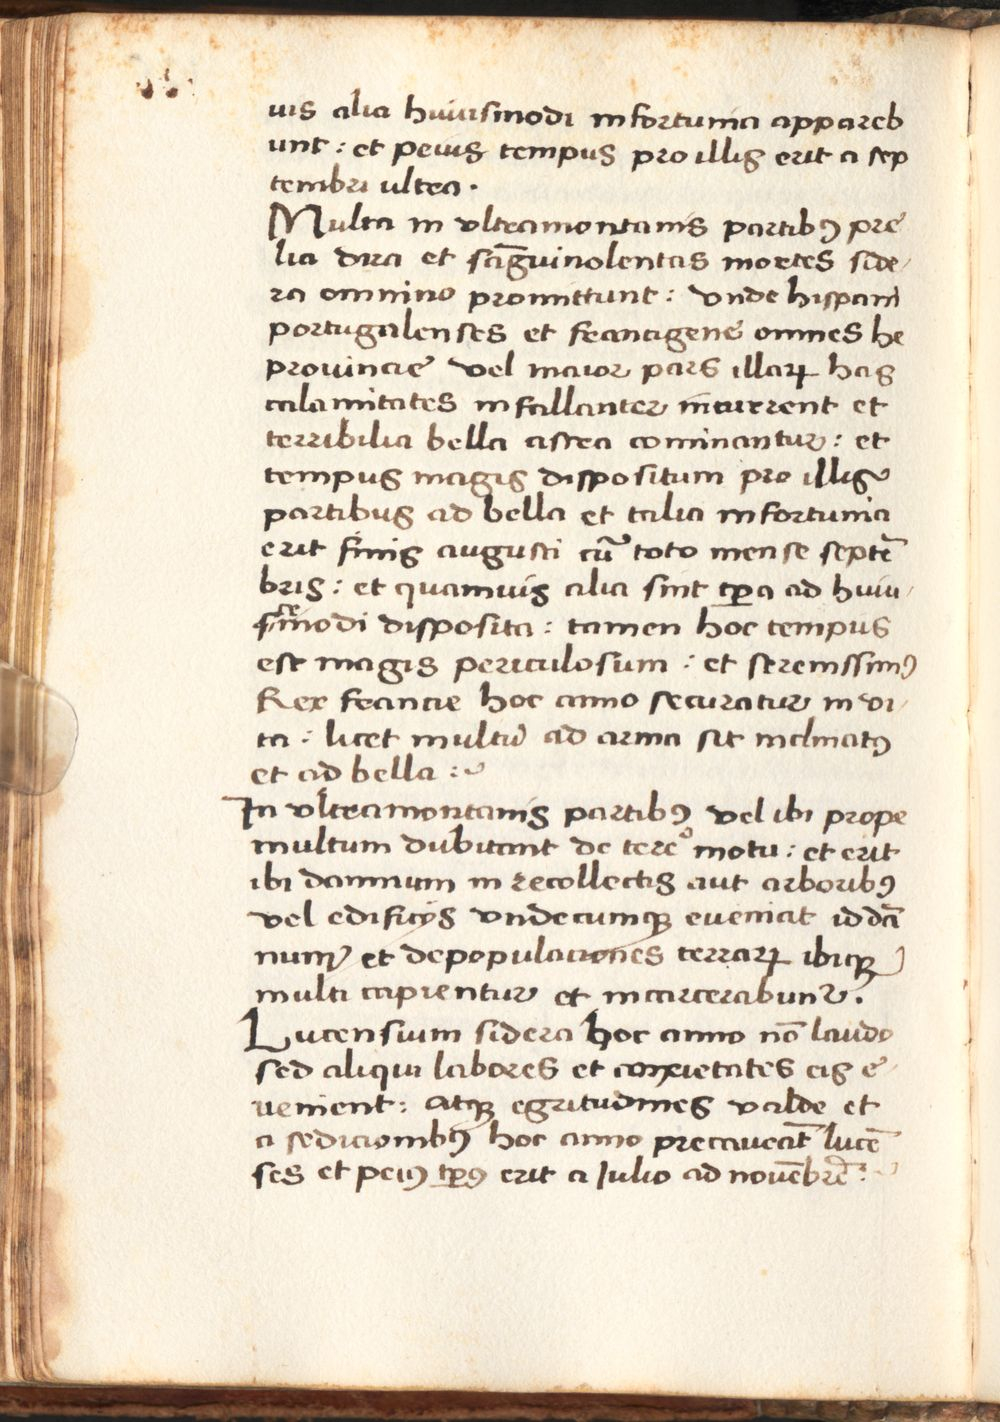 uis alia huiuismodi infortunia appareb
unt : et peius tempus pro illis erit a sep
tembri ultra .
Multa in vltramontanis partibꝰ pre
lia dira et sāguinolentas mortes side/
ra omnino promittunt : vnde hispani
portugalenses et francigene omnes he
prouincie vel maior pars illaꝝ has
calamitates infallanter incurrent et
terribilia bella astra cominantur : et
tempus magis dispositum pro illis
partibus ad bella et talia infortunia
erit finis augusti cū toto mense septē
bris : et quamuis alia sint tꝑa ad huiu/
scemodi disposita : tamen hoc tempus
est magis periculosum : et serenissimꝰ
Rex francie hoc anno securatur in vi/
ta : licet multū ad arma sit inclinatꝰ
et ad bella :~
In vltramontanis partibꝰ vel ibi prope
multum dubitant de terreº motu : et erit
ibi damnum in recollectis aut arboribꝰ
vel edificijs vndecumqꝫ eveniat id dā
num et depopulationes terraꝝ ibiqꝫ
multi capientur et incarcerabunt᷑.
Lucensium sidera hoc anno nō laudo
sed aliqui labores et anxietates eis e/
uenient : atqꝫ egritudines valde et
a seditionibꝰ hoc anno precaueāt lucē
ses et peiꝰ tꝑꝰ erit a Julio ad nouēbrē :~